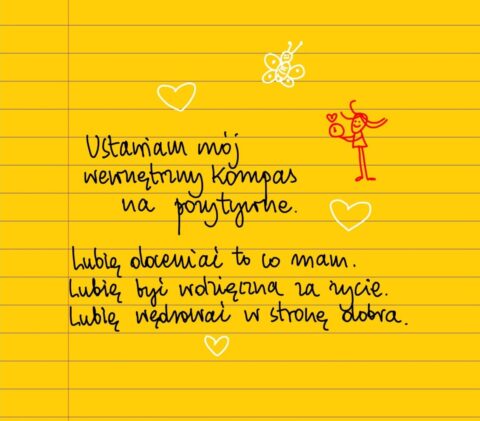 Ustawiam mój
wewnętrzny kompas
na pozytywne.
Lubię doceniać to co mam.
Lubię być wdzięczna za życie.
Lubię wędrować w stronę dobra.